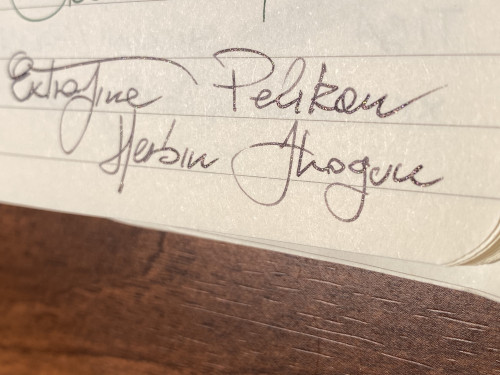 Extrafine Pelikan
Herbin Shogun